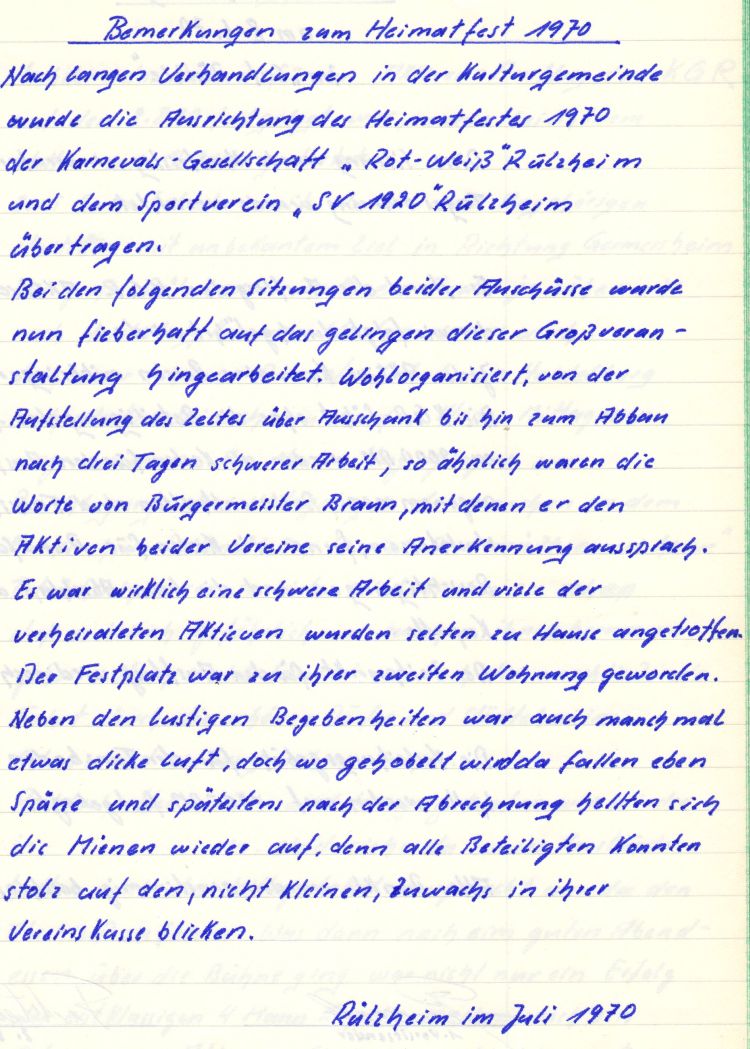 Bemerkungen zum Heimatfest 1970
Nach langen Verhandlungen in der Kulturgemeinde
wurde die Ausrichtung des Heimatfestes 1970
der Karnevals-Gesellschaft „Rot-Weiß" Rülzheim
und dem Sportverein „SV 1920" Rülzheim
übertragen.
Bei den folgenden Sitzungen beider Auschüsse wurde
nun fieberhaft auf das gelingen dieser Großveran-
staltung hingearbeitet. Wohlorganisiert, von der
Aufstellung des Zeltes über Ausschank bis hin zum Abbau
nach drei Tagen schwerer Arbeit, so ähnlich waren die
Worte von Bürgermeister Braun, mit denen er den
Aktiven beider Vereine seine Anerkennung aussprach.
Es war wirklich eine schwere Arbeit und viele der
verheirateten Aktieven wurden selten zu Hause angetroffen.
Der Festplatz war zu ihrer zweiten Wohnung geworden.
Neben den lustigen Begebenheiten war auch manchmal
etwas dicke Luft, doch wo gehobelt wird da fallen eben
Späne und spätestens nach der Abrechnung hellten sich
die Mienen wieder auf, denn alle Beteiligten konnten
stolz auf den, nicht kleinen, Zuwachs in ihrer
Vereinskasse blicken.
Rülzheim im Juli 1970